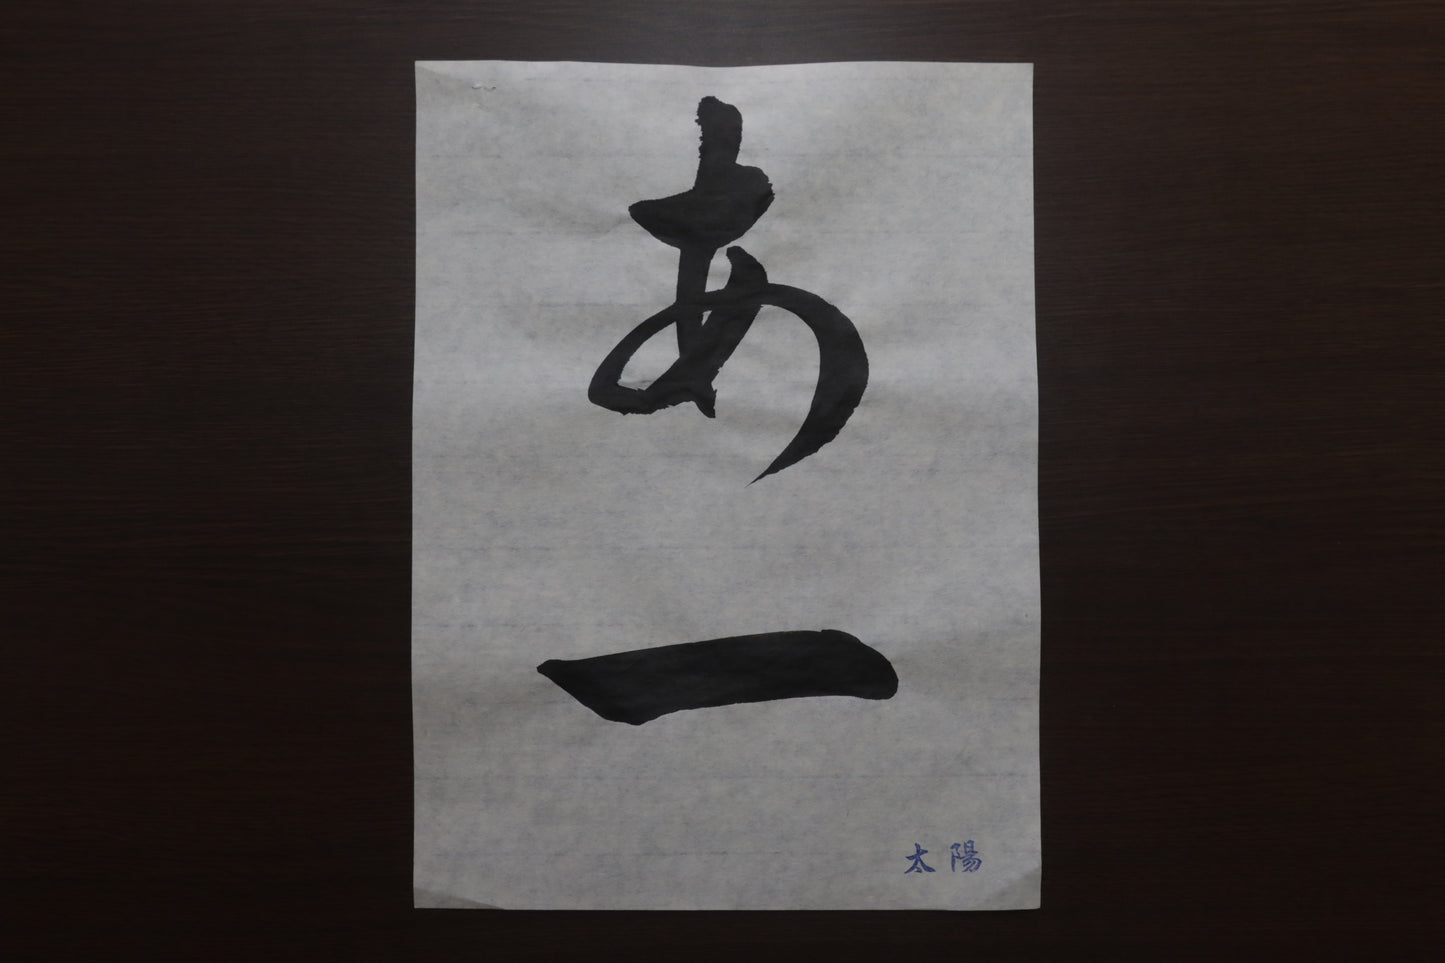 あ
一
太陽